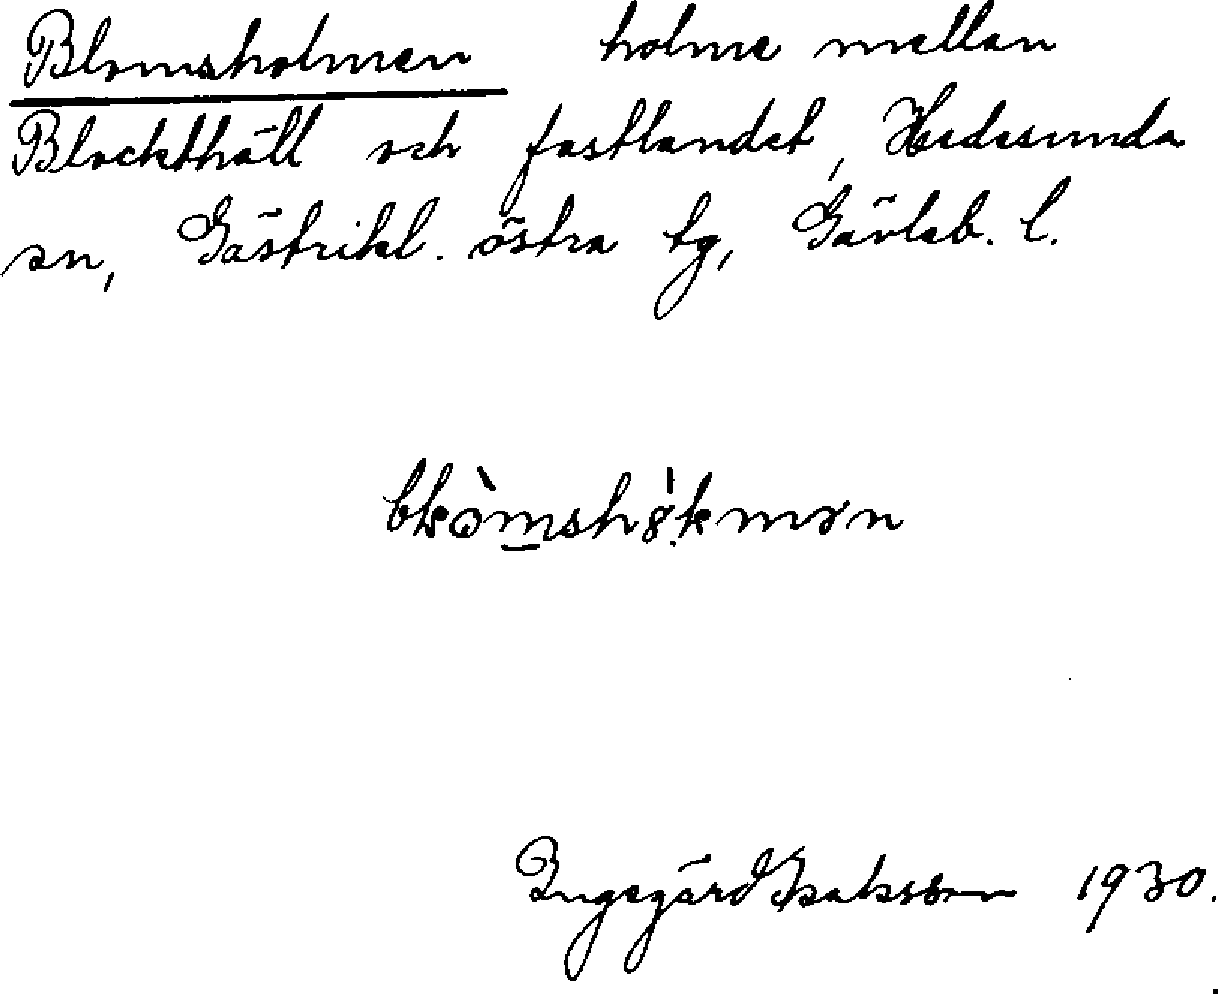 Blomsholmen holme mellan
Blackthäll och fastlandet, Hedesunda
sn, Gästrikl. östra tg, Gävleb. l.
Ingegärd Isaksson 1930.